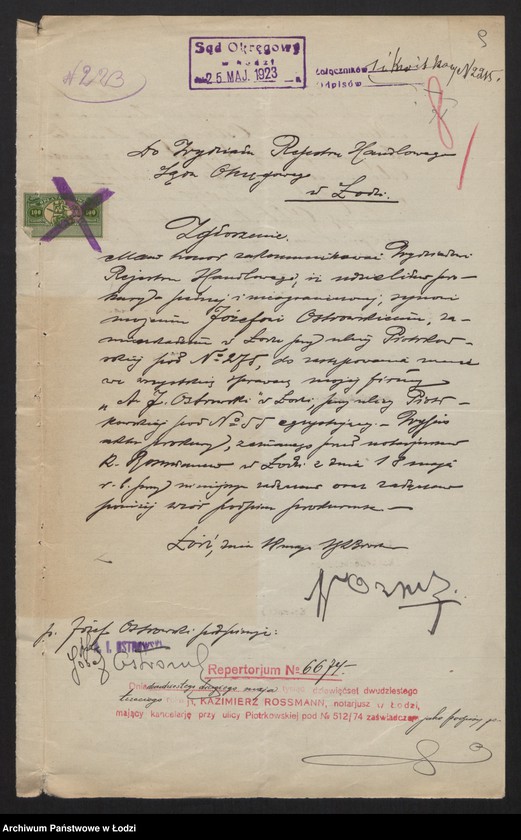 Sąd Okręgowy
w Łodzi
25 MAJ. 1923
załączników
odpisów
N 223
Do Wydziału Rejestru Handlowego
Sądu Okręgowego
w Łodzi.
100 100
Zgłoszenie.
Mam honor zakomunikować Wydziałowi
Rejestru Handlowego, iż udzieliłem pro-
kury pełnej i nieograniczonej, synowi
mojemu Józefowi Ostrowskiemu, za-
mieszkałemu w Łodzi przy ulicy Piotrkow-
skiej pod № 275, do zastępowania mnie
we wszystkich sprawach mojej firmy
„A. J. Ostrowski" w Łodzi przy ulicy Piotr-
kowskiej pod № 55 egzystującej. - Wypis
aktu prokury, zeznanego przed notarjuszem
K. Rossmanem w Łodzi z dnia 18 maja
r. b. przy niniejszym załączam oraz załączam
poniżej wzór podpisu prokurenta. -
Łódź, dnia maja 1923 roku
p. Józef Ostrowski podpisuje:
I. OSTROWSKI
Józef Ostrowski
Repertorjum № 6674.-
Dnia dwudziestego drugiego maja tysiąc dziewięćset dwudziestego
trzeciego r. ja, KAZIMIERZ ROSSMANN, notarjusz w Łodzi,
mający kancelarję przy ulicy Piotrkowskiej pod № 512/74 zaświadczam
Archiwum Państwowe w Łodzi